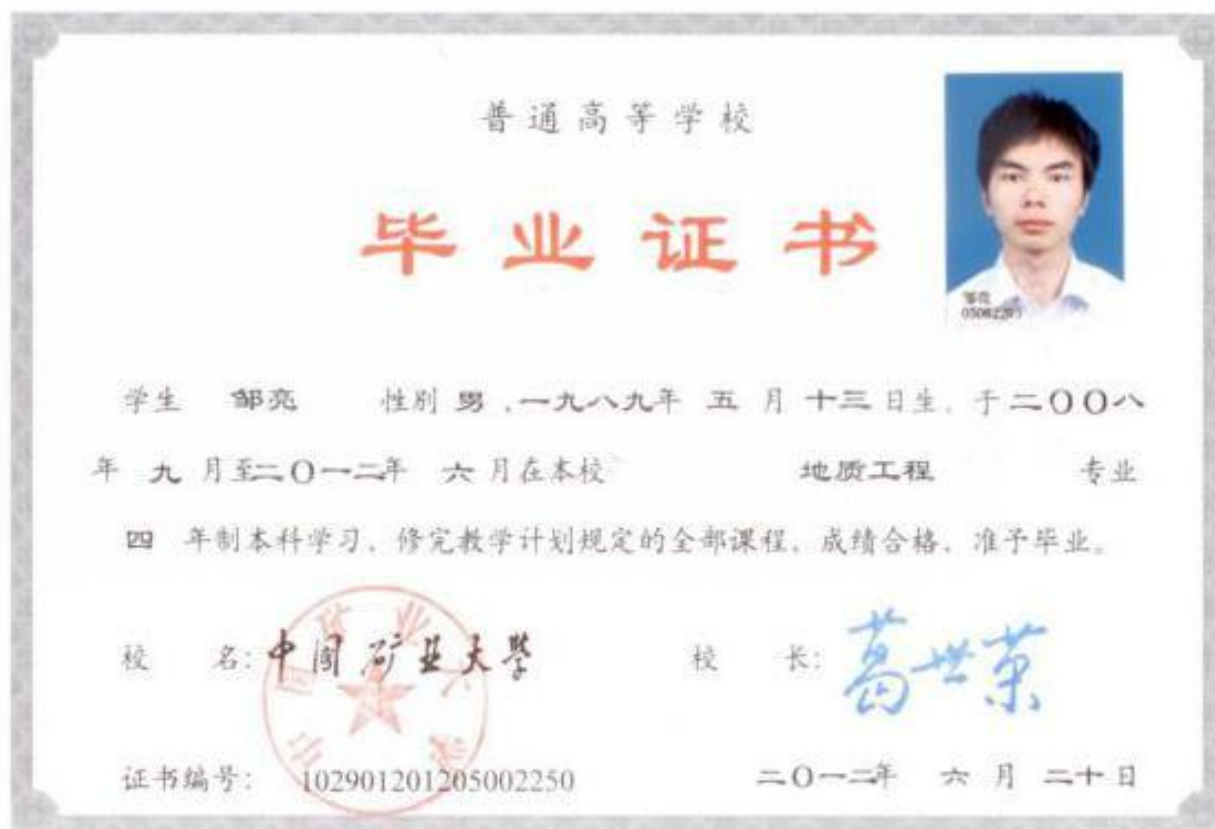 普通高等学校
毕业证书
邹亮
学生 邹亮 性别 男 ,一九八九年 五 月 十三 日生, 于二〇〇八
年 九 月至二〇一二年 六 月在本校 地质工程 专业
四 年制本科学习, 修完教学计划规定的全部课程, 成绩合格, 准予毕业。
校 名: 中国矿业大学 校 长: 葛世荣
证书编号: 102901201205002250 二〇一二年 六 月 二十 日